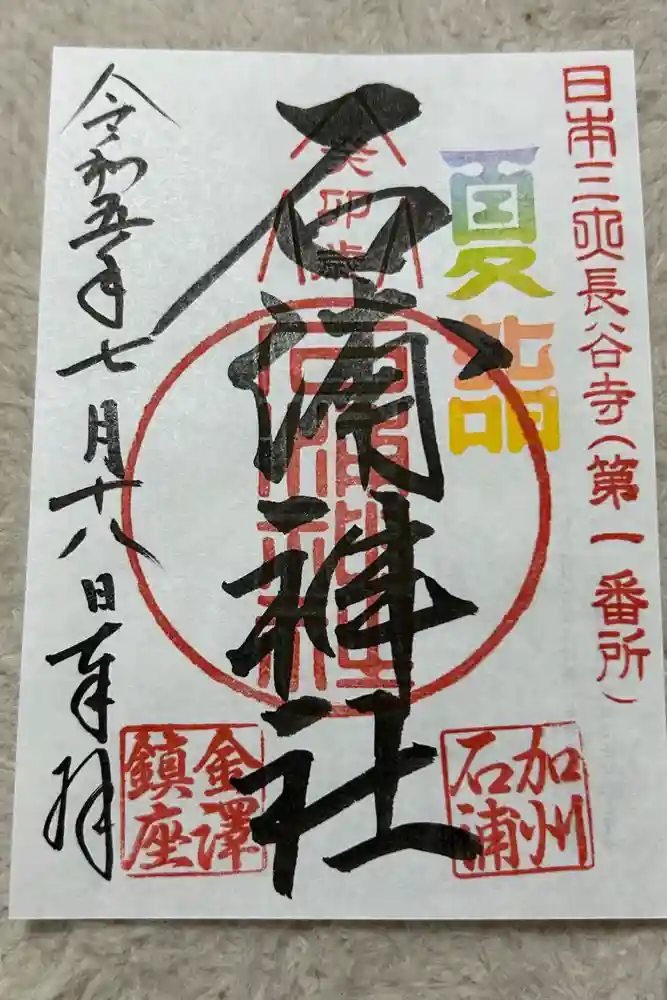 日本三所長谷寺(第一番所)
夏詣
癸卯歳
石浦神社
石浦神社
加州
石浦
金澤
鎮座
令和五年七月十八日奉拝